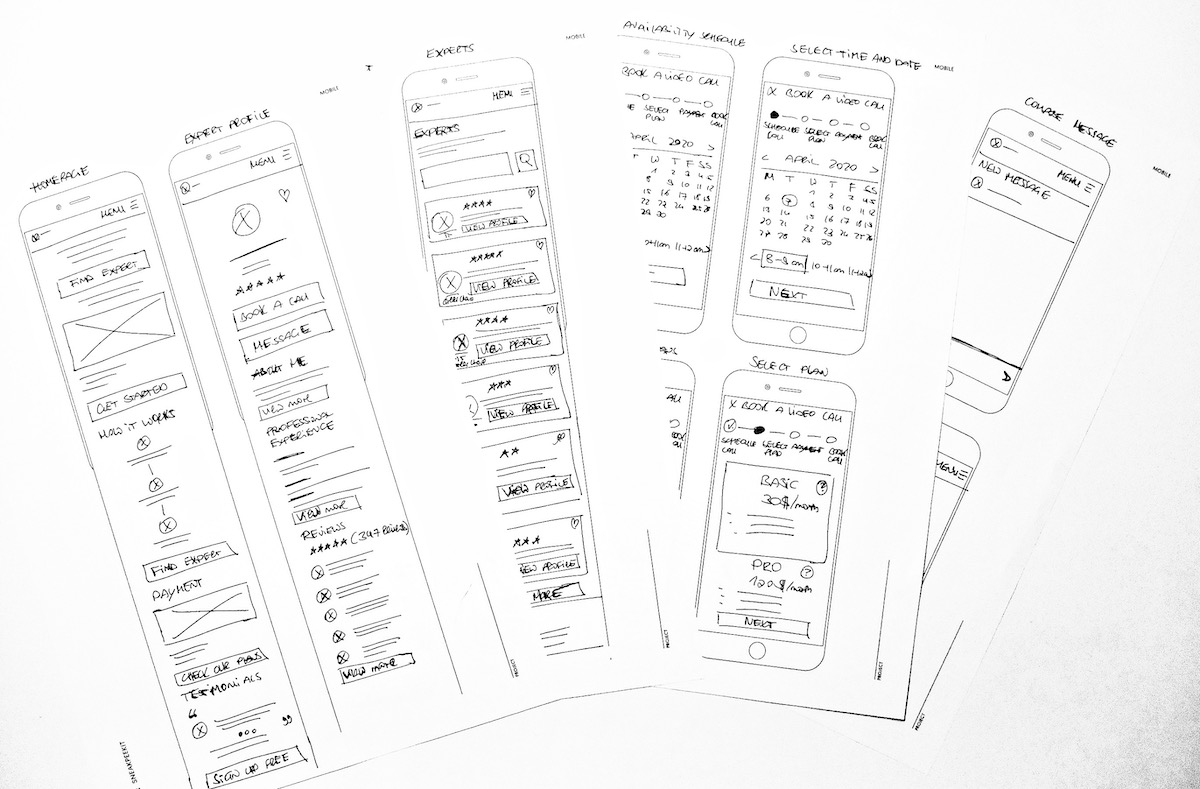 HOMEPAGE
MENU
FIND EXPERT
GET STARTED
HOW IT WORKS
FIND EXPERT
PAYMENT
CHECK OUR PLANS
TESTIMONIALS
“
”
SIGN UP FREE
SNEAKPEEKIT
EXPERT PROFILE
MOBILE
MENU
BOOK A CALL
MESSAGE
ABOUT ME
VIEW MORE
PROFESSIONAL
EXPERIENCE
VIEW MORE
REVIEWS
VIEW MORE
EXPERTS
MOBILE
MENU
EXPERTS
VIEW PROFILE
VIEW PROFILE
VIEW PROFILE
VIEW PROFILE
VIEW PROFILE
VIEW PROFILE
MORE
PROJECT
AVAILABILITY SCHEDULE
BOOK A VIDEO CALL
SELECT PAYMENT BOOK
PLAN CALL
APRIL 2020 >
T W T F S S
1 2 3 4 5
8 9 10 11 12
15 16 17 18 19
22 23 24 25 26
29 30
PROJECT
SELECT TIME AND DATE
MOBILE
X BOOK A VIDEO CALL
SCHEDULE SELECT PAYMENT BOOK
CALL PLAN CALL
< APRIL 2020 >
M T W T F S S
1 2 3 4 5
6 7 8 9 10 11 12
13 14 15 16 17 18 19
20 21 22 23 24 25 26
27 28 29 30
NEXT
SELECT PLAN
X BOOK A VIDEO CALL
SCHEDULE SELECT PAYMENT BOOK
CALL PLAN CALL
BASIC ?
30$/month
PRO ?
120$/month
NEXT
PROJECT
MESSAGE
MOBILE
MENU
NEW MESSAGE
MENU
PROJECT